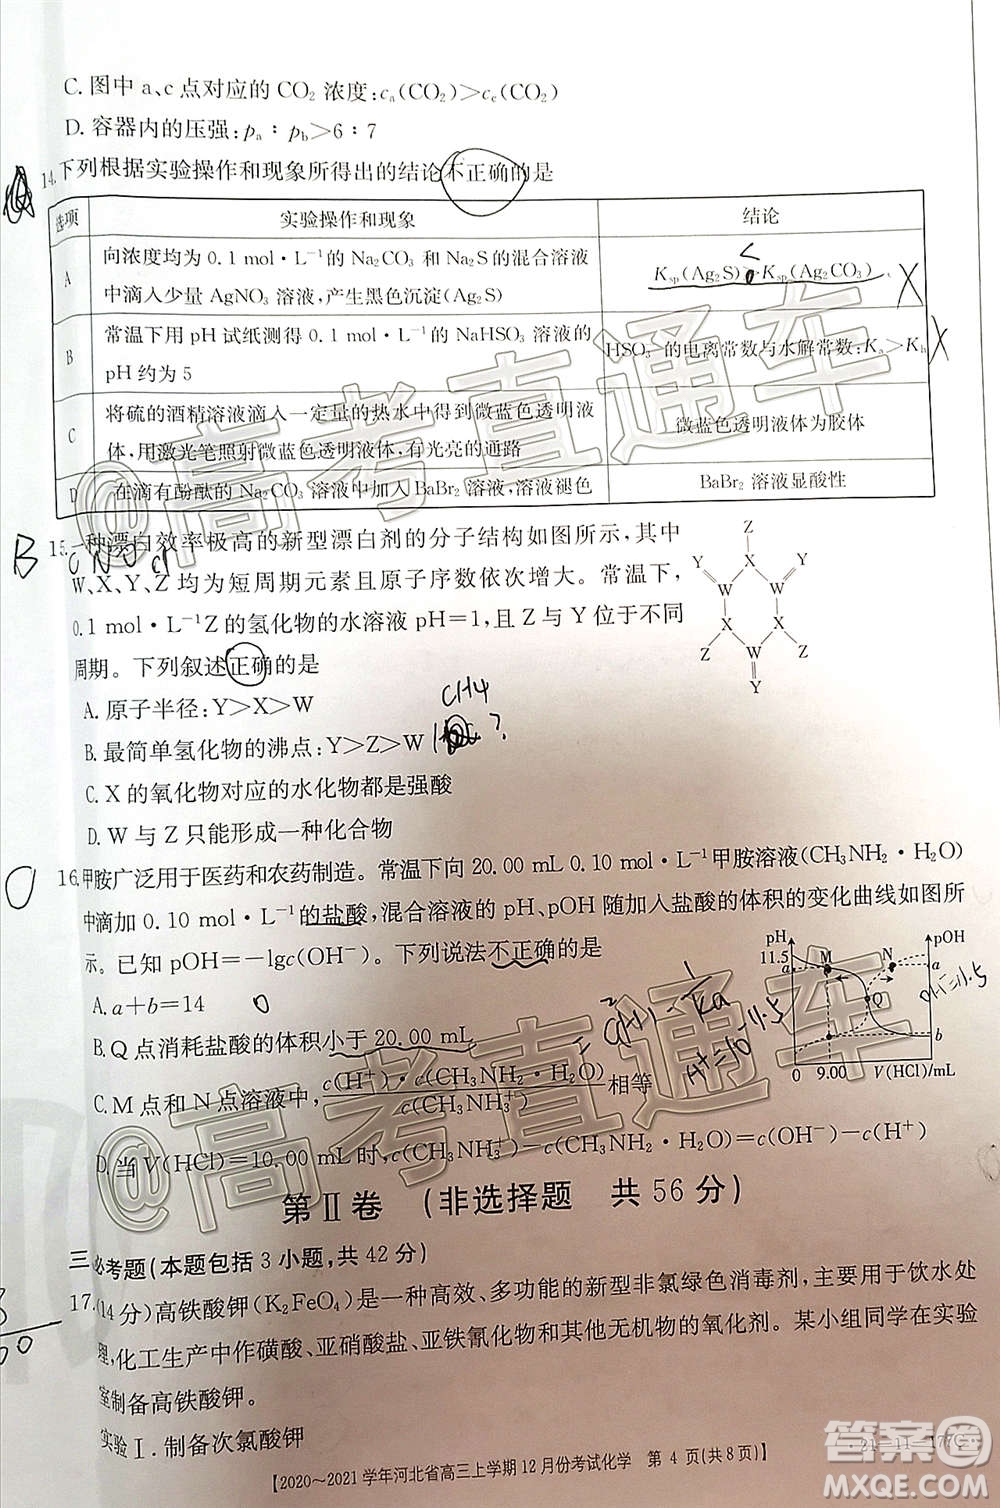 C. 图中 a、c 点对应的 CO₂ 浓度:cₐ(CO₂)>c꜀(CO₂)
D. 容器内的压强:pₐ∶p_b>6∶7
14. 下列根据实验操作和现象所得出的结论不正确的是
选项 实验操作和现象 结论
A 向浓度均为 0.1 mol·L⁻¹的 Na₂CO₃ 和 Na₂S 的混合溶液
中滴入少量 AgNO₃ 溶液,产生黑色沉淀(Ag₂S)
<
Ksp(Ag₂S) Ksp(Ag₂CO₃)
X
B 常温下用 pH 试纸测得 0.1 mol·L⁻¹的 NaHSO₃ 溶液的
pH 约为 5
HSO₃⁻的电离常数与水解常数:Kₐ>K_h
X
C 将硫的酒精溶液滴入一定量的热水中得到微蓝色透明液
体,用激光笔照射微蓝色透明液体,有光亮的通路
微蓝色透明液体为胶体
D 在滴有酚酞的 Na₂CO₃ 溶液中加入 BaBr₂ 溶液,溶液褪色
BaBr₂ 溶液显酸性
B
C N O Cl
15. 一种漂白效率极高的新型漂白剂的分子结构如图所示,
W、X、Y、Z 均为短周期元素且原子序数依次增大。常温下,
0.1 mol·L⁻¹Z 的氢化物的水溶液 pH=1,且 Z 与 Y 位于不同
周期。下列叙述正确的是
Z
Y X Y
W W
X X
Z W Z
Y
A. 原子半径:Y>X>W
CH4
B. 最简单氢化物的沸点:Y>Z>W
?
C. X 的氧化物对应的水化物都是强酸
D. W 与 Z 只能形成一种化合物
16. 甲胺广泛用于医药和农药制造。常温下向 20.00 mL 0.10 mol·L⁻¹甲胺溶液(CH₃NH₂·H₂O)
中滴加 0.10 mol·L⁻¹的盐酸,混合溶液的 pH、pOH 随加入盐酸的体积的变化曲线如图所
示。已知 pOH=−lgc(OH⁻)。下列说法不正确的是
A. a+b=14
B. Q 点消耗盐酸的体积小于 20.00 mL
C. M 点和 N 点溶液中,c(H⁺)·c(CH₃NH₂·H₂O)/c(CH₃NH₃⁺)相等
D. 当 V(HCl)=10.00 mL 时,c(CH₃NH₃⁺)−c(CH₃NH₂·H₂O)=c(OH⁻)−c(H⁺)
pH pOH
11.5 M N
a a
Q
b
0 9.00 V(HCl)/mL
第Ⅱ卷 (非选择题 共 56 分)
三、必考题(本题包括 3 小题,共 42 分)
17. (14 分)高铁酸钾(K₂FeO₄)是一种高效、多功能的新型非氯绿色消毒剂,主要用于饮水处
理,化工生产中作磺酸、亚硝酸盐、亚铁氰化物和其他无机物的氧化剂。某小组同学在实验
室制备高铁酸钾。
实验Ⅰ. 制备次氯酸钾
【2020~2021 学年河北省高三上学期 12 月份考试化学 第 4 页(共 8 页)】
·21-11-177C·
@高考直通车
@高考直通车
答案圈
MXQE.COM